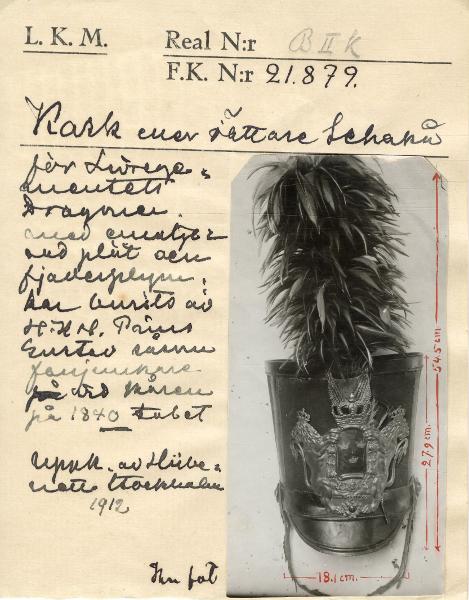 L. K. M.
Real N:r B II K
F.K. N:r 21.879.
Kask eller rättare Schakå
för Livrege-
mentets
Dragoner.
med
och plåt och
fjäderplym.
har burits av
H.K.H. Prins
Gustav såsom
på vid kåren
på 1840 talet
Uppk. av Hübe-
nett Stockholm
1912
54.5 cm.
27.9 cm.
18.1 cm.